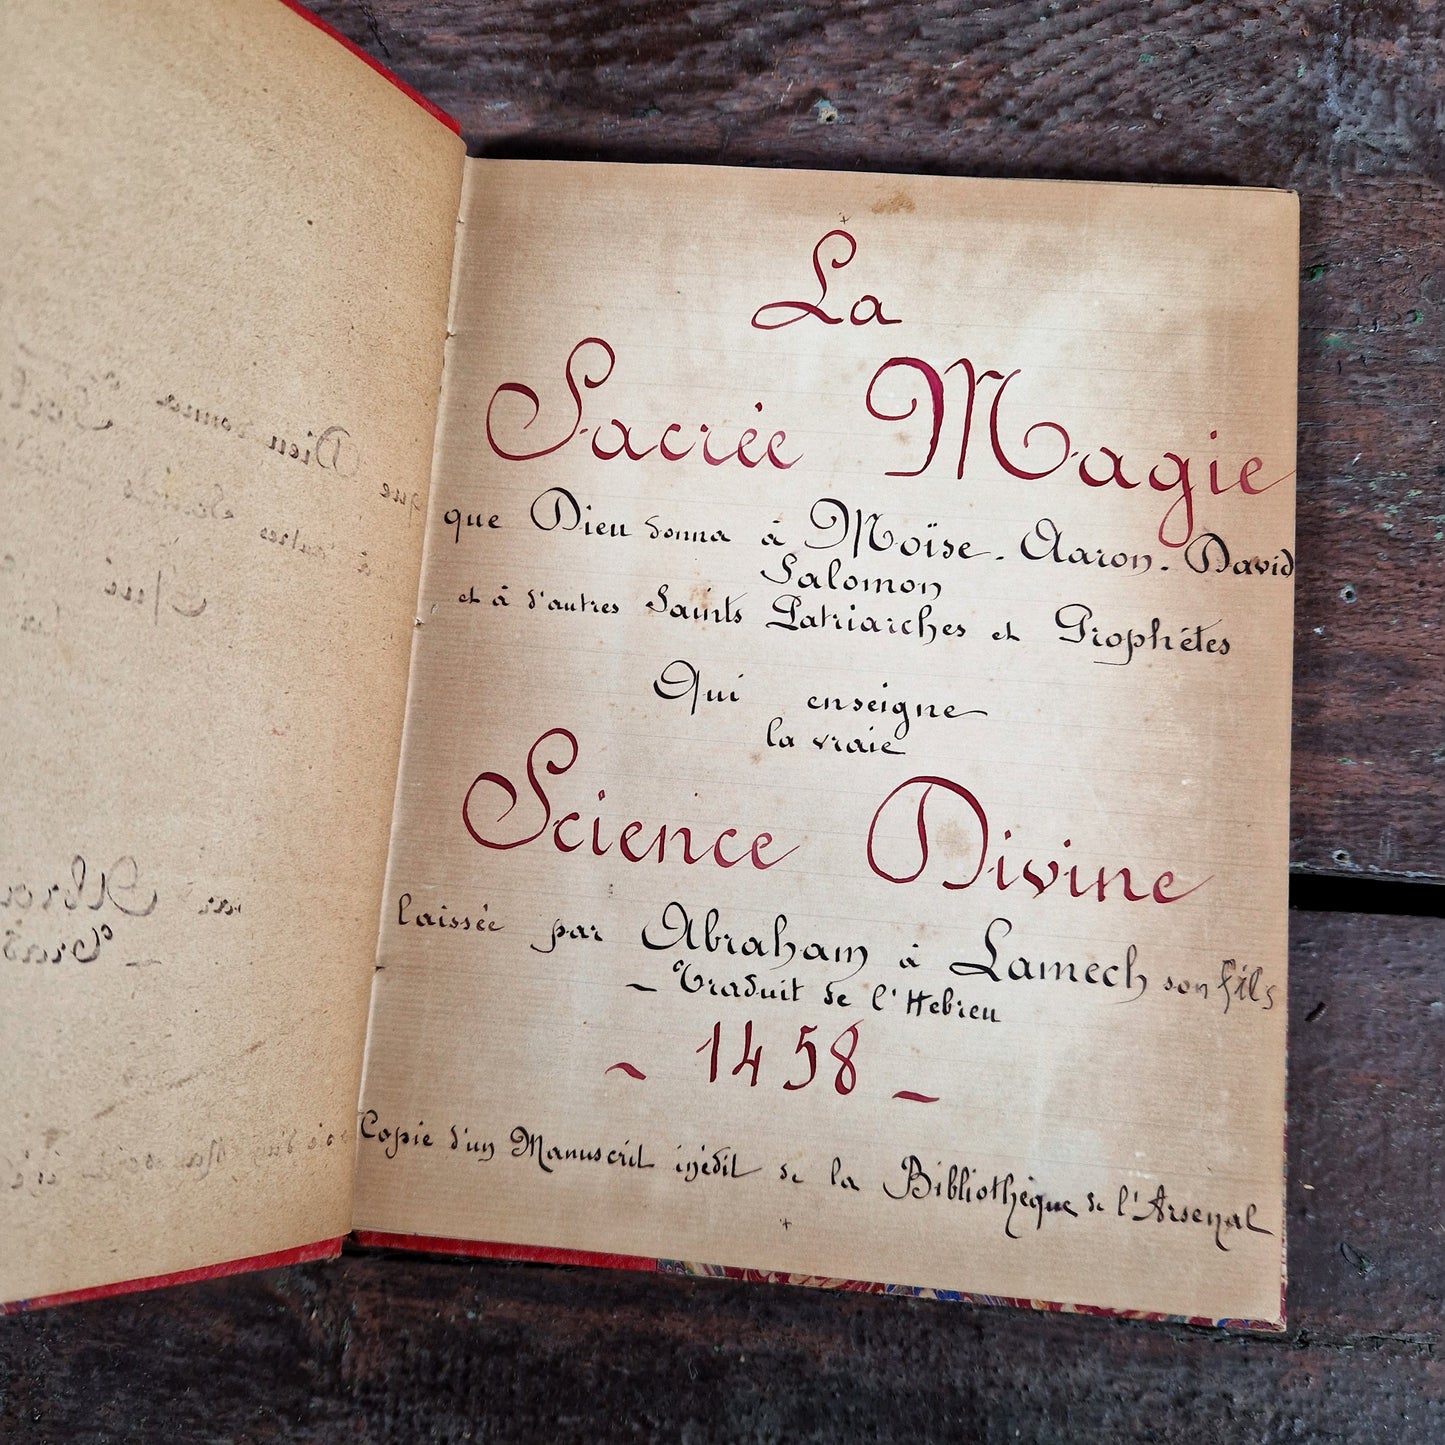 La
Sacrée Magie
que Dieu donna à Moïse - Aaron - David
Salomon
et à d'autres Saints Patriarches et Prophétes
Qui enseigne
la vraie
Science Divine
laissée par Abraham à Lamech son fils
- Traduit de l'Hebreu
- 1458 -
Copie d'un Manuscrit inédit de la Bibliothèque de l'Arsenal